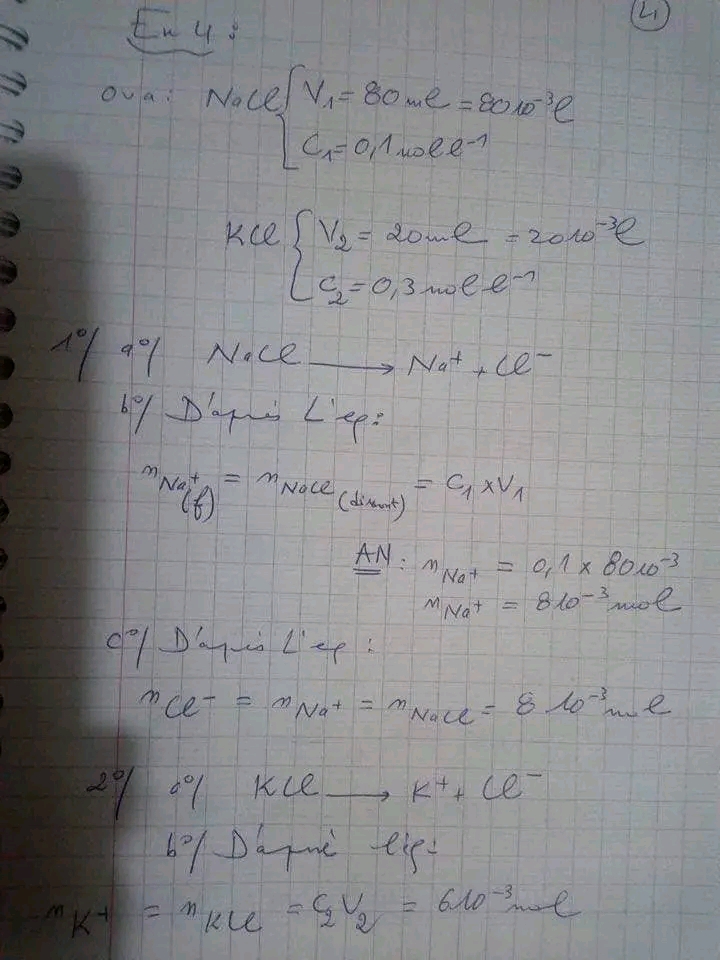 4
Ex 4 :
on a : NaCl { V₁ = 80 ml = 80 10⁻³ l
C₁ = 0,1 mol l⁻¹
KCl { V₂ = 20 ml = 20 10⁻³ l
C₂ = 0,3 mol l⁻¹
1°/ a°/ NaCl → Na⁺ + Cl⁻
b°/ D'après L'eq :
n Na⁺ (f) = n NaCl (dissout) = C₁ x V₁
AN : n Na⁺ = 0,1 x 80 10⁻³
n Na⁺ = 8 10⁻³ mol
c°/ D'après L'eq :
n Cl⁻ = n Na⁺ = n NaCl = 8 10⁻³ mol
2°/ a°/ KCl → K⁺ + Cl⁻
b°/ D'aprè l'eq :
n K⁺ = n KCl = C₂V₂ = 6 10⁻³ mol